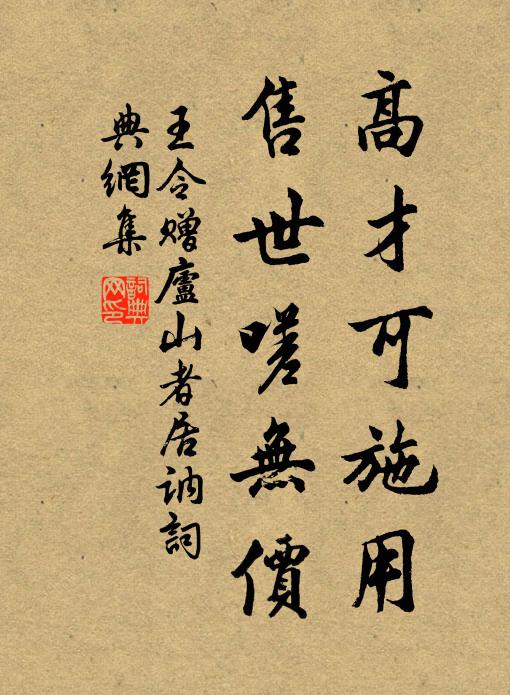 高才可施用
售世嗟無價
王令赠廬山者居訥詞
典網集
詞典
网印